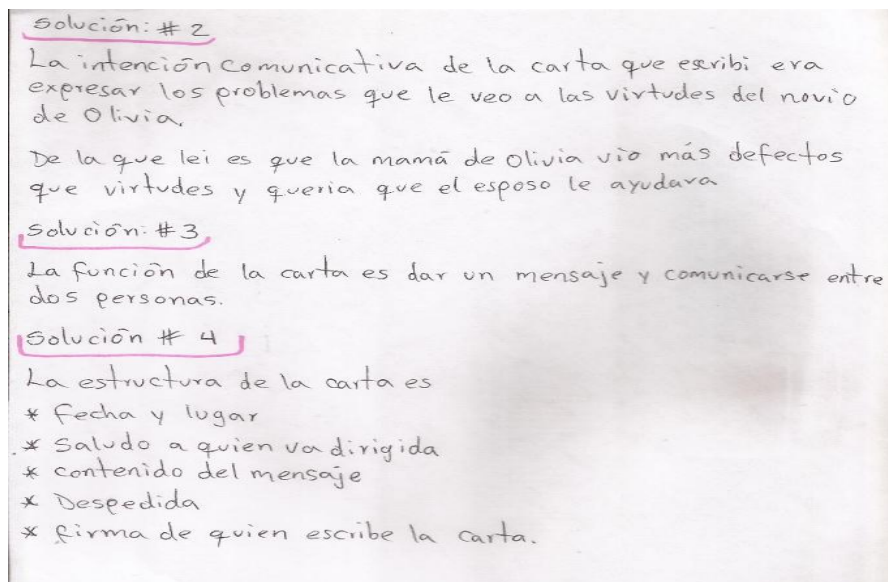 Solución: # 2
La intención comunicativa de la carta que escribi era
expresar los problemas que le veo a las virtudes del novio
de Olivia.
De la que lei es que la mamá de Olivia vio más defectos
que virtudes y queria que el esposo le ayudara
Solución: #3
La función de la carta es dar un mensaje y comunicarse entre
dos personas.
Solución # 4
La estructura de la carta es
* Fecha y lugar
* Saludo a quien va dirigida
* contenido del mensaje
* Despedida
* firma de quien escribe la carta.